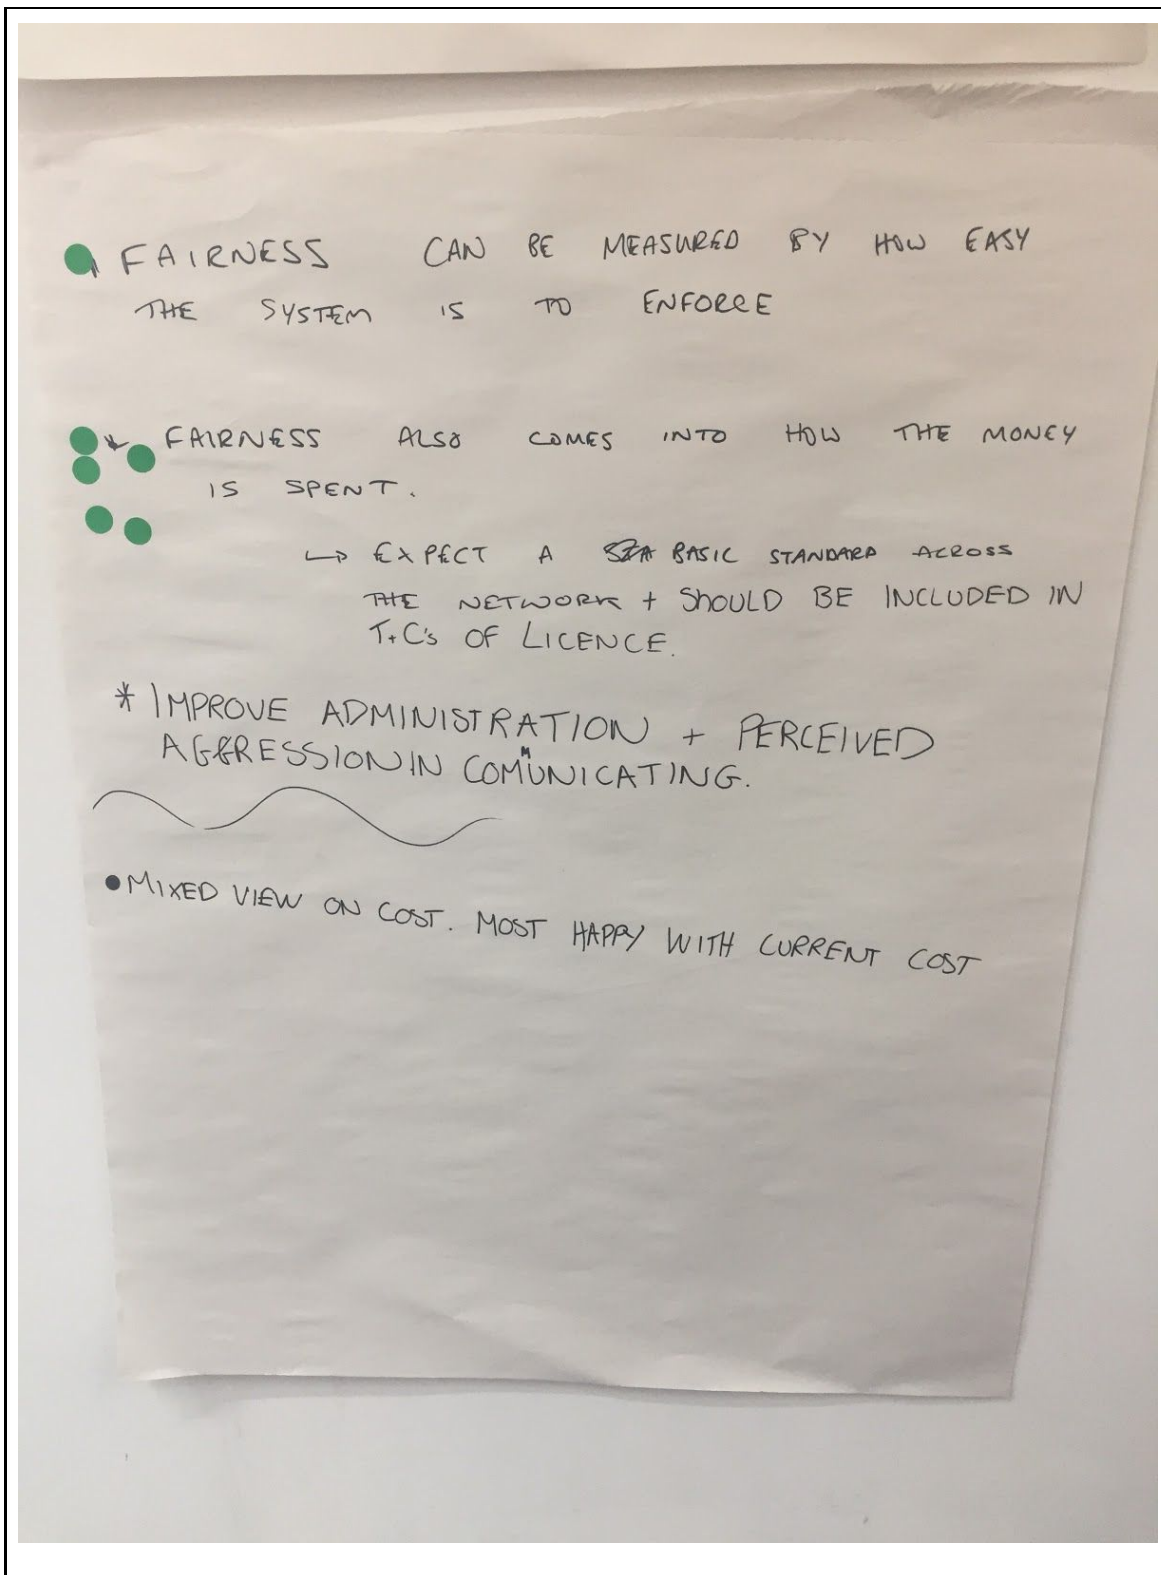 FAIRNESS CAN BE MEASURED BY HOW EASY
THE SYSTEM IS TO ENFORCE
* FAIRNESS ALSO COMES INTO HOW THE MONEY
IS SPENT.
↳ EXPECT A BASIC STANDARD ACROSS
THE NETWORK + SHOULD BE INCLUDED IN
T+C's OF LICENCE.
* IMPROVE ADMINISTRATION + PERCEIVED
AGGRESSION IN COMMUNICATING.
• MIXED VIEW ON COST. MOST HAPPY WITH CURRENT COST